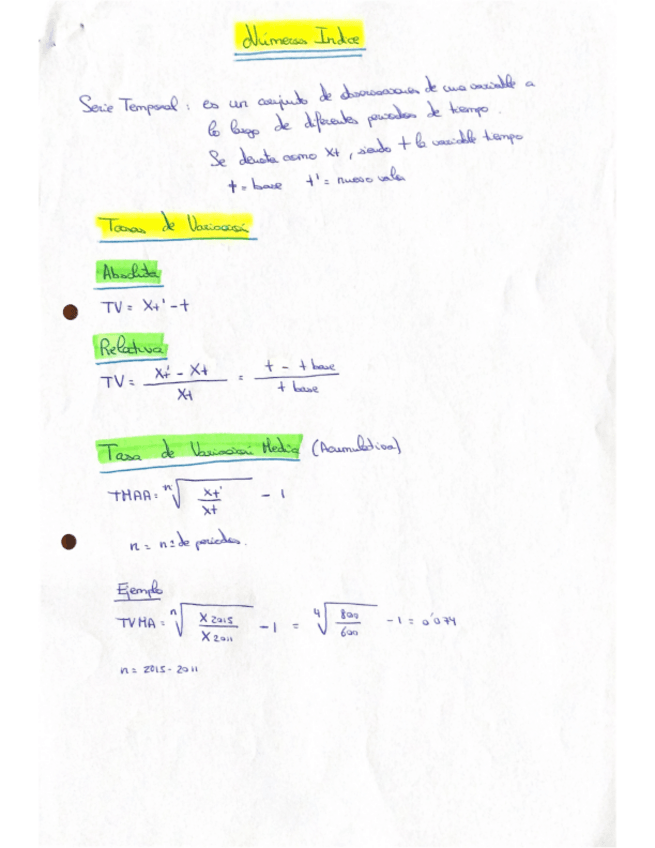 Números Indice
Serie Temporal : es un conjunto de observaciones de una variable a
lo largo de diferentes periodos de tiempo.
Se denota como Xt , siendo t la variable tiempo
t = base t' = nuevo valor
Tasas de Variación
Absoluta
TV = Xt' - t
Relativa
TV = (Xt' - Xt) / Xt = (t - t base) / t base
Tasa de Variación Media (Acumulativa)
TMAA = ⁿ√(Xt' / Xt) - 1
n = nº de periodos.
Ejemplo
TVMA = ⁿ√(X 2015 / X 2011) - 1 = ⁴√(800 / 600) - 1 = 0'074
n = 2015 - 2011